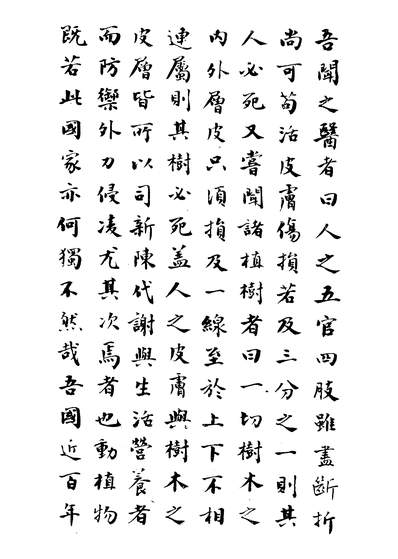 吾聞之醫者曰人之五官四肢雖盡斷折
尚可苟活皮膚傷損若及三分之一則其
人必死又嘗聞諸植樹者曰一切樹木之
內外層皮只須損及一線至於上下不相
連屬則其樹必死蓋人之皮膚與樹木之
皮層皆所以司新陳代謝與生活營養者
而防禦外力侵凌尤其次焉者也動植物
既若此國家亦何獨不然哉吾國近百年